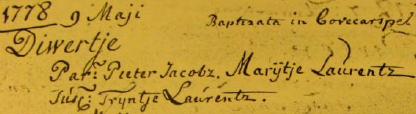 1778 9 Maji Baptizata in Covecarspel
Diwertje
Par: Pieter Jacobz. Marijtje Laurentz
Susc: Tryntje Laurentz.